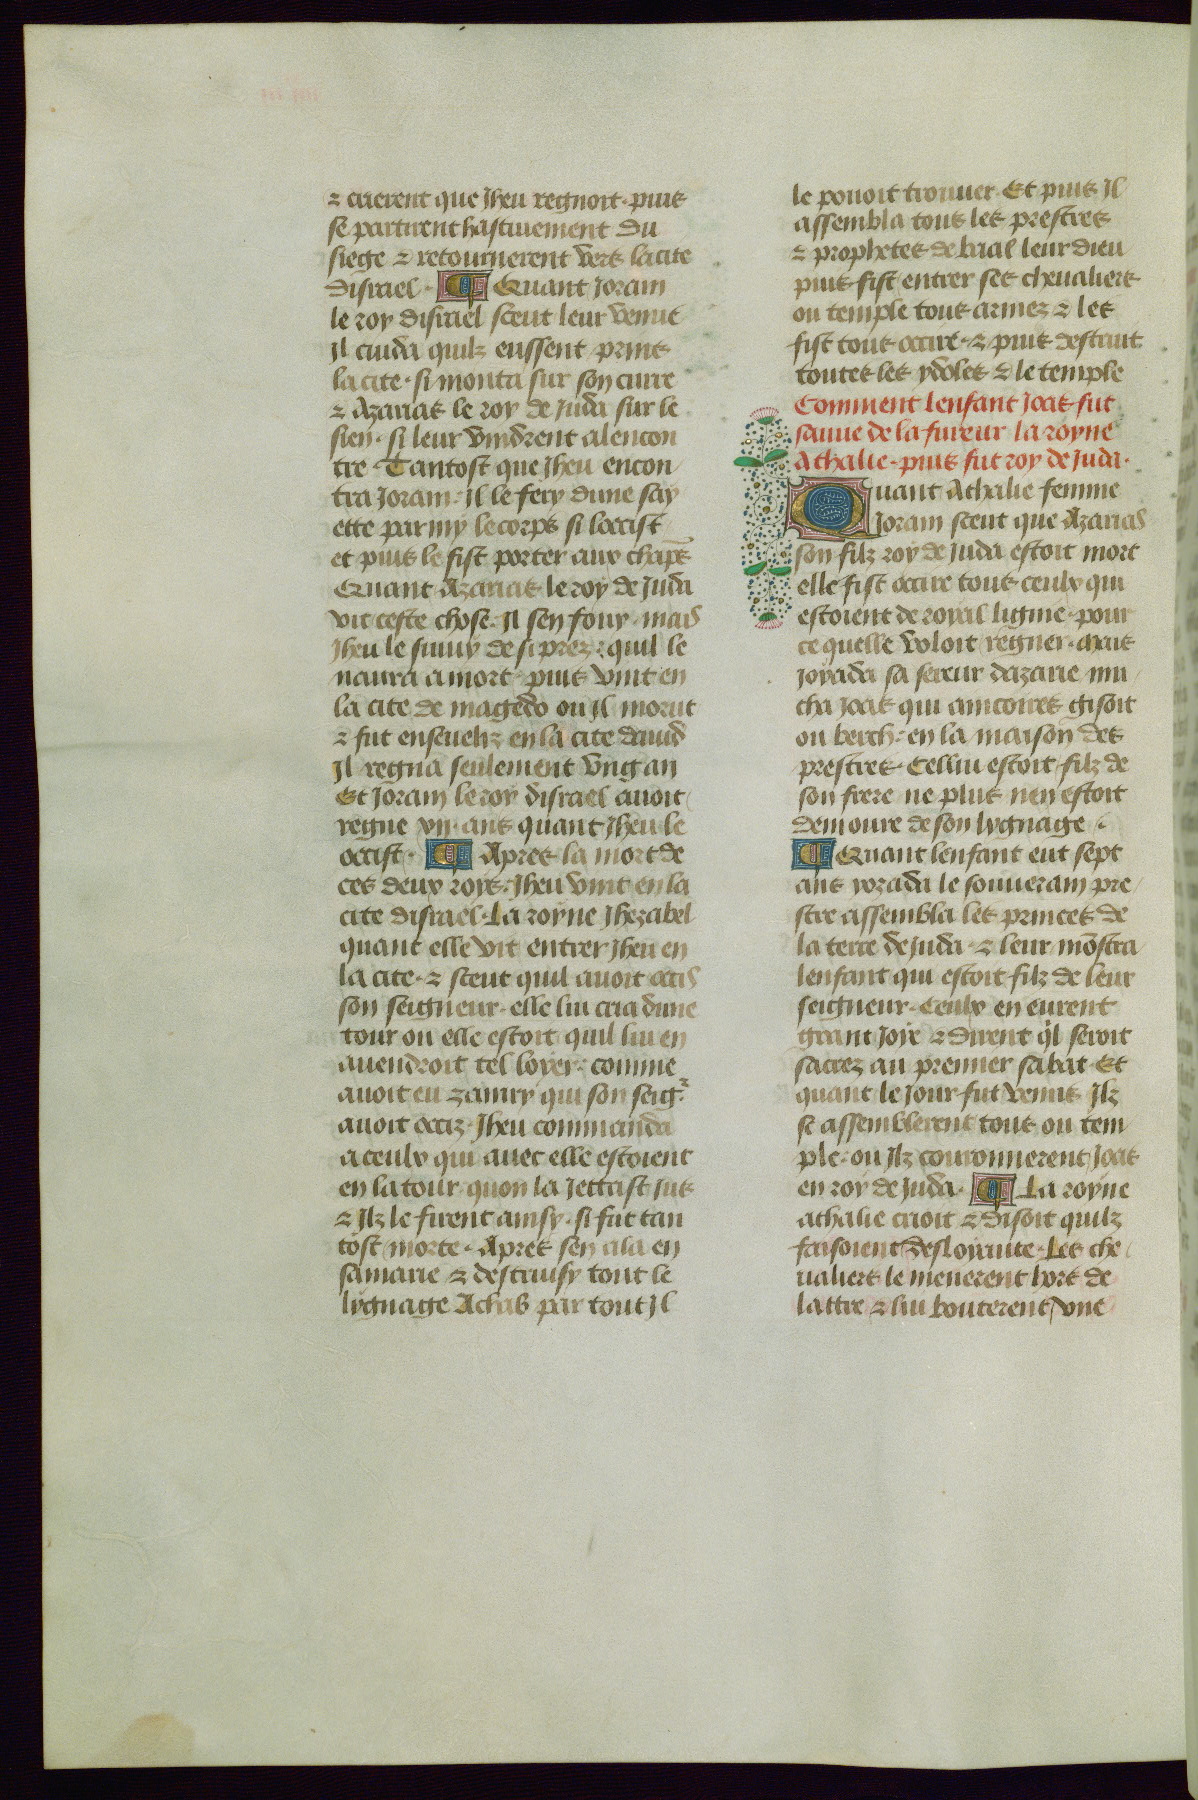 ⁊ crierent que Jheu regnoit · puis
se partirent hastiuement du
siege ⁊ retournerent vers la cite
disrael · ¶ Quant Joram
le roy disrael sceut leur venue
Il cuida quilz eussent prins
la cite · si monta sur son curre
⁊ Azarias le roy de Juda sur le
sien · si leur vindrent alencon
tre Tantost que Jheu encon
tra Joram · il le fery dune say
ette par my le corps si loccist
et puis le fist porter aux chāps
Quant Azarias le roy de Juda
vit ceste chose · Il sen fouy · mais
Jheu le siuuy de si prez · quil le
naura a mort · puis vint en
la cite de magedo ou il morut
⁊ fut enseueliz en la cite dauid
Il regna seulement vng an
Et Joram le roy disrael auoit
regne vii · ans quant Jheu le
occist · ¶ Apres la mort de
ces deux roys · Jheu vint en la
cite disrael · La royne Jhezabel
quant elle vit entrer Jheu en
la cite · ⁊ sceut quil auoit occis
son seigneur · elle lui cria dune
tour ou elle estoit quil lui en
auendroit tel loyer · comme
auoit eu zamry qui son seigr
auoit occiz · Jheu commanda
a ceulx qui auec elle estoient
en la tour quon la jettast jus
⁊ Ilz le firent ainsy · si fut tan
tost morte · Apres sen ala en
samarie ⁊ destruisy tout le
lygnage Achab par tout Il
le pouoit trouuer · Et puis Il
assembla tous les prestres
⁊ prophetes de baal leur dieu
puis fist entrer ses cheualiers
ou temple tous armez ⁊ les
fist tous occire · ⁊ puis destruit
toutes les ydoles ⁊ le temple
Comment lenfant Joas fut
sauue de la fureur la royne
Athalie · puis fut roy de Juda ·
Quant Athalie femme
Joram sceut que Azarias
son filz roy de Juda estoit mort
elle fist occire tous ceulx qui
estoient de royal lignie · pour
ce quelle voloit regner · mais
Joyada sa sereur dazarie mu
cha Joas qui aincoires gisoit
ou berch · en la maison des
prestres · Cellui estoit filz de
son frere ne plus nen estoit
demoure de son lygnage ·
¶ Quant lenfant eut sept
ans yorada le souuerain pre
stre assembla les princes de
la terre de Juda · ⁊ leur mōstra
lenfant qui estoit filz de leur
seigneur · Ceulx en eurent
grant joye ⁊ dirent ql seroit
sacrez au premier sabat · Et
quant le jour fut venus Ilz
se assemblerent tous ou tem
ple · ou Ilz couronnerent Joas
en roy de Juda · ¶ La royne
athalie crioit ⁊ disoit quilz
faisoient desloyaute · Les che
ualiers le menerent hors de
lattre ⁊ lui bouterent vne